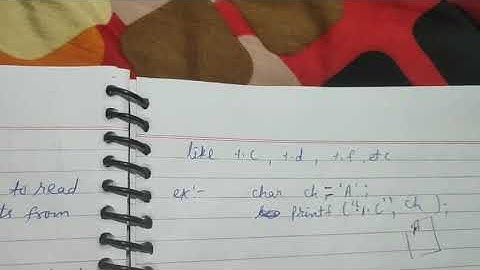 like %c, %d, %f, etc
to read
ts from
ex:- char ch = 'A';
printf ("%c", ch);
A